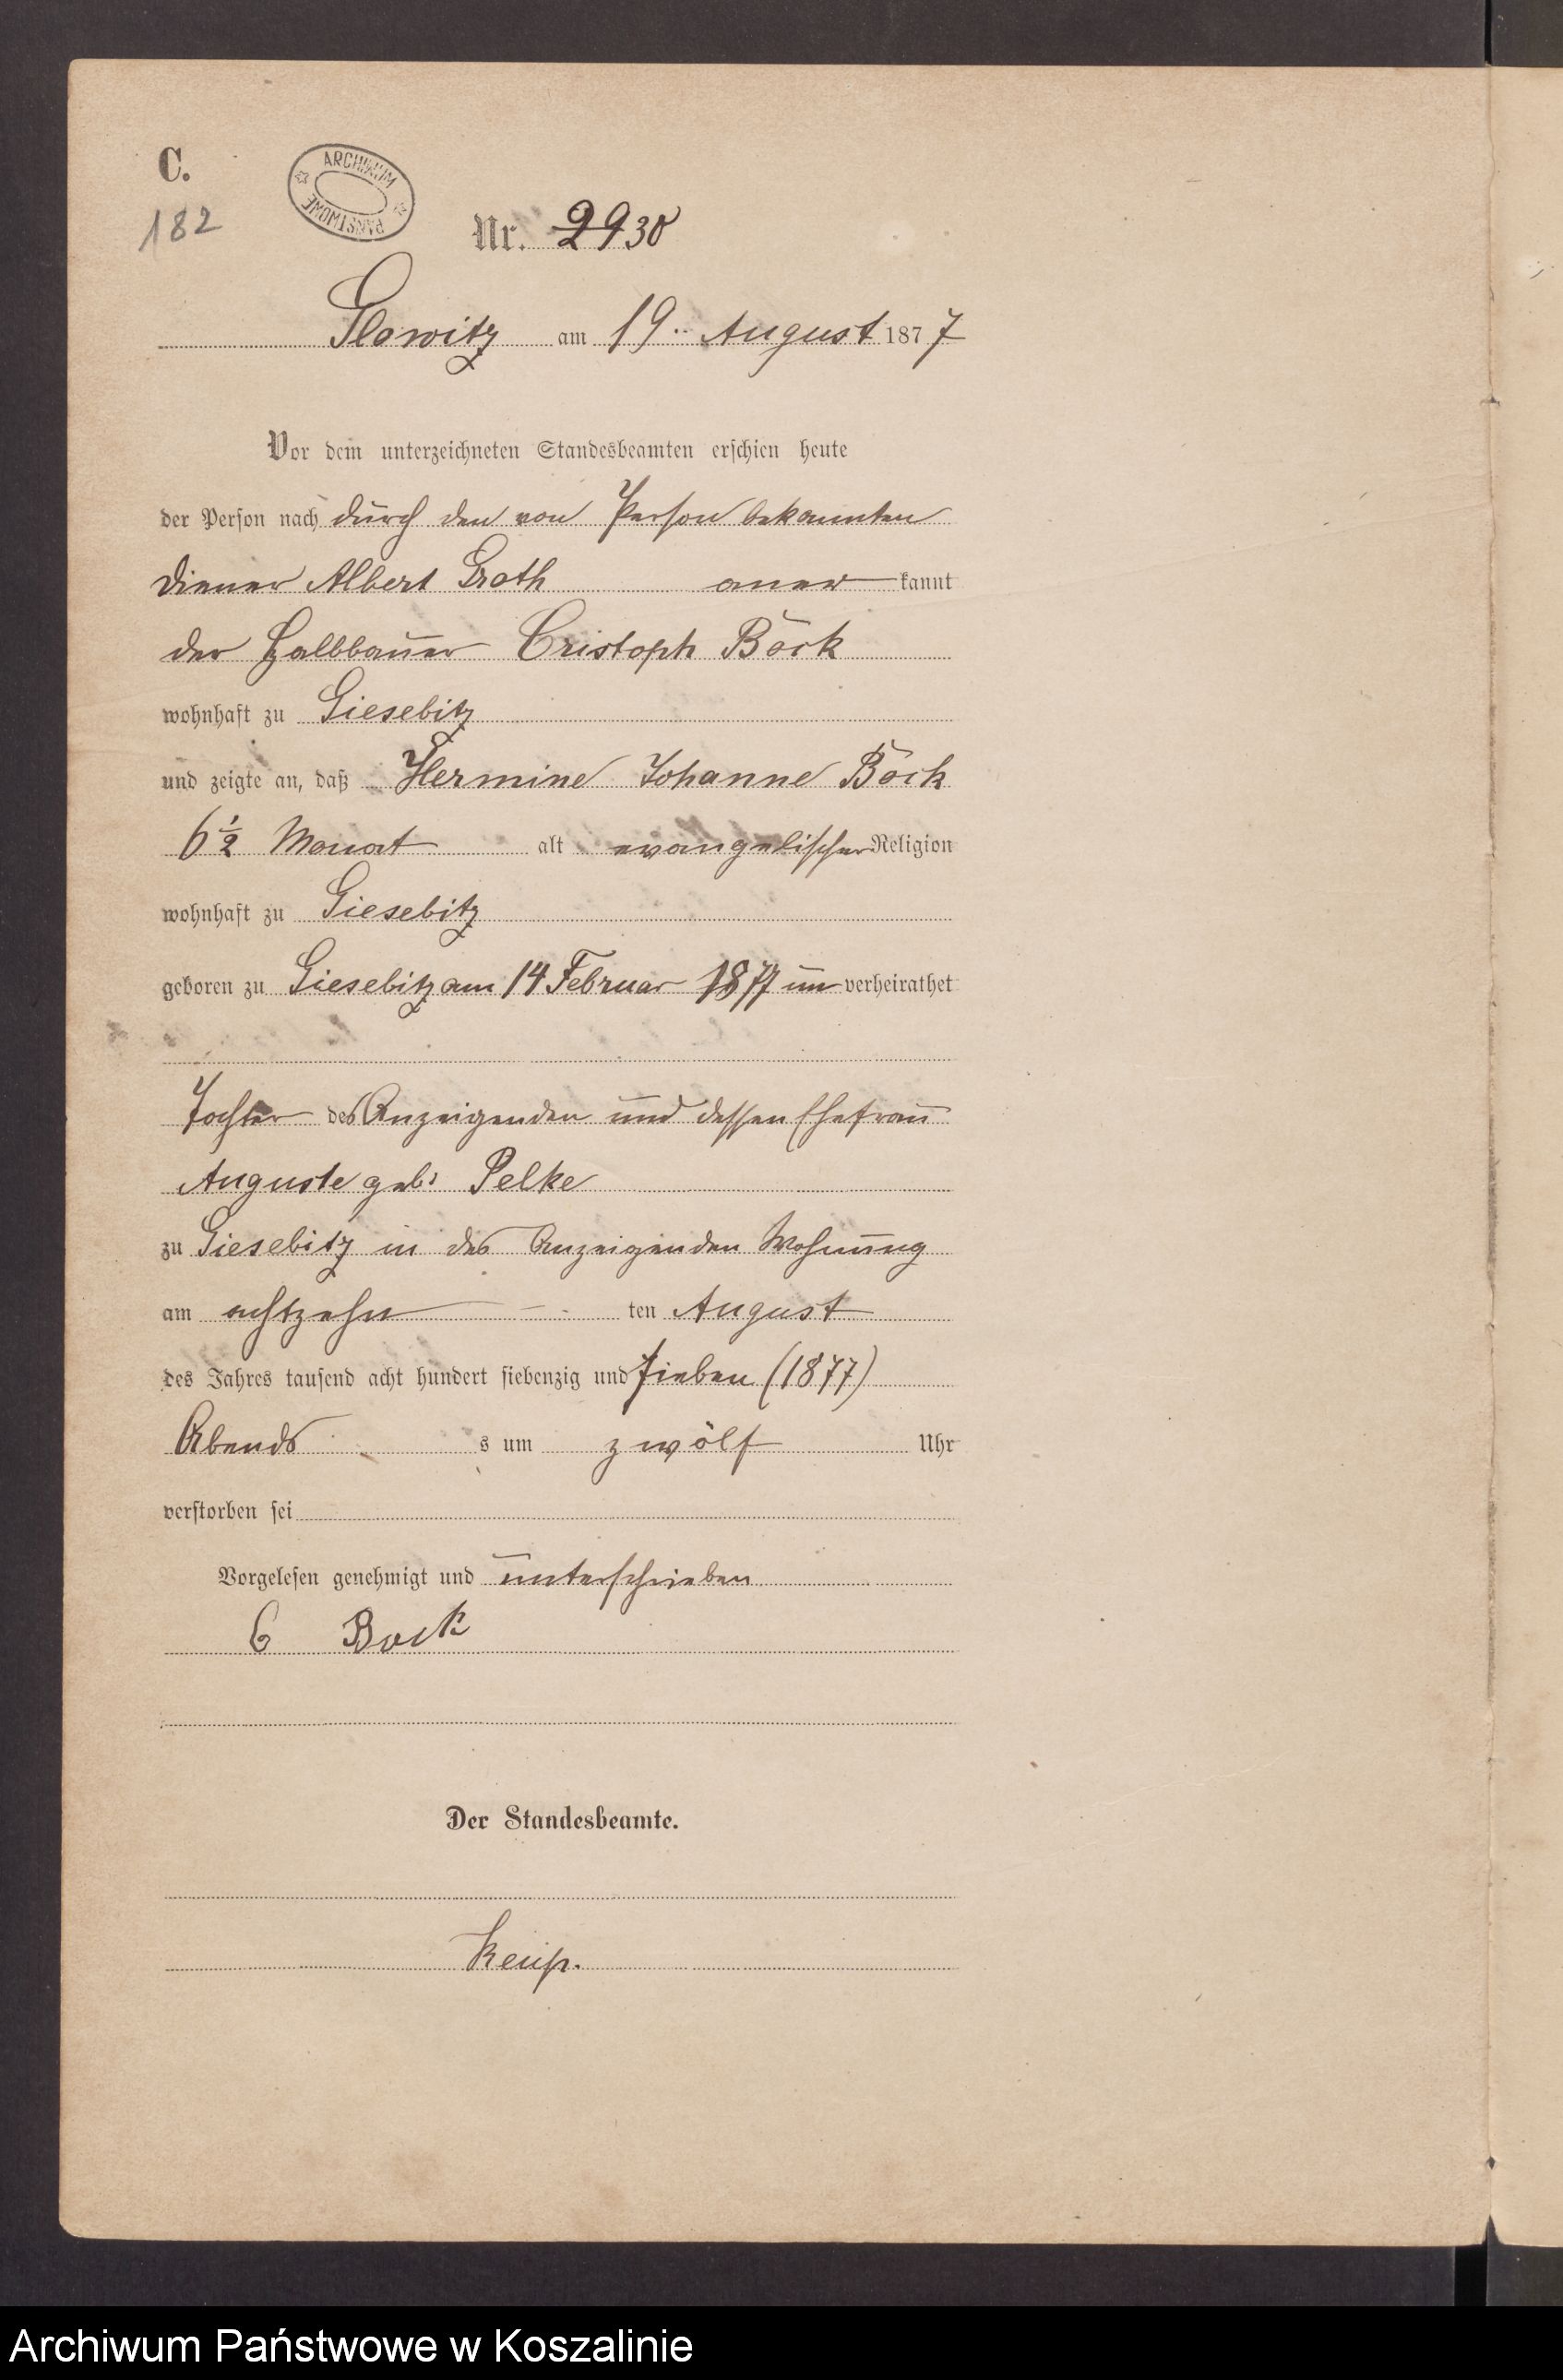 C.
182
ARCHIWUM PAŃSTWOWE
Nr. 2930
Glowitz am 19. August 1877
Vor dem unterzeichneten Standesbeamten erschien heute
der Person nach durch den von Person bekannten
Diener Albert Groth aner kannt
der Halbbauer Cristoph Böck
wohnhaft zu Giesebitz
und zeigte an, daß Hermine Johanne Böck
6 1/2 Monat alt evangelischer Religion
wohnhaft zu Giesebitz
geboren zu Giesebitz am 14 Februar 1877 un verheirathet
Tochter des Anzeigenden und dessen Ehefrau
Auguste geb: Pelke
zu Giesebitz in des Anzeigenden Wohnung
am achtzehn ten August
des Jahres tausend acht hundert siebenzig und sieben (1877)
Abends s um zwölf Uhr
verstorben sei
Vorgelesen genehmigt und unterschrieben
C Bock
Der Standesbeamte.
Keup.
Archiwum Państwowe w Koszalinie